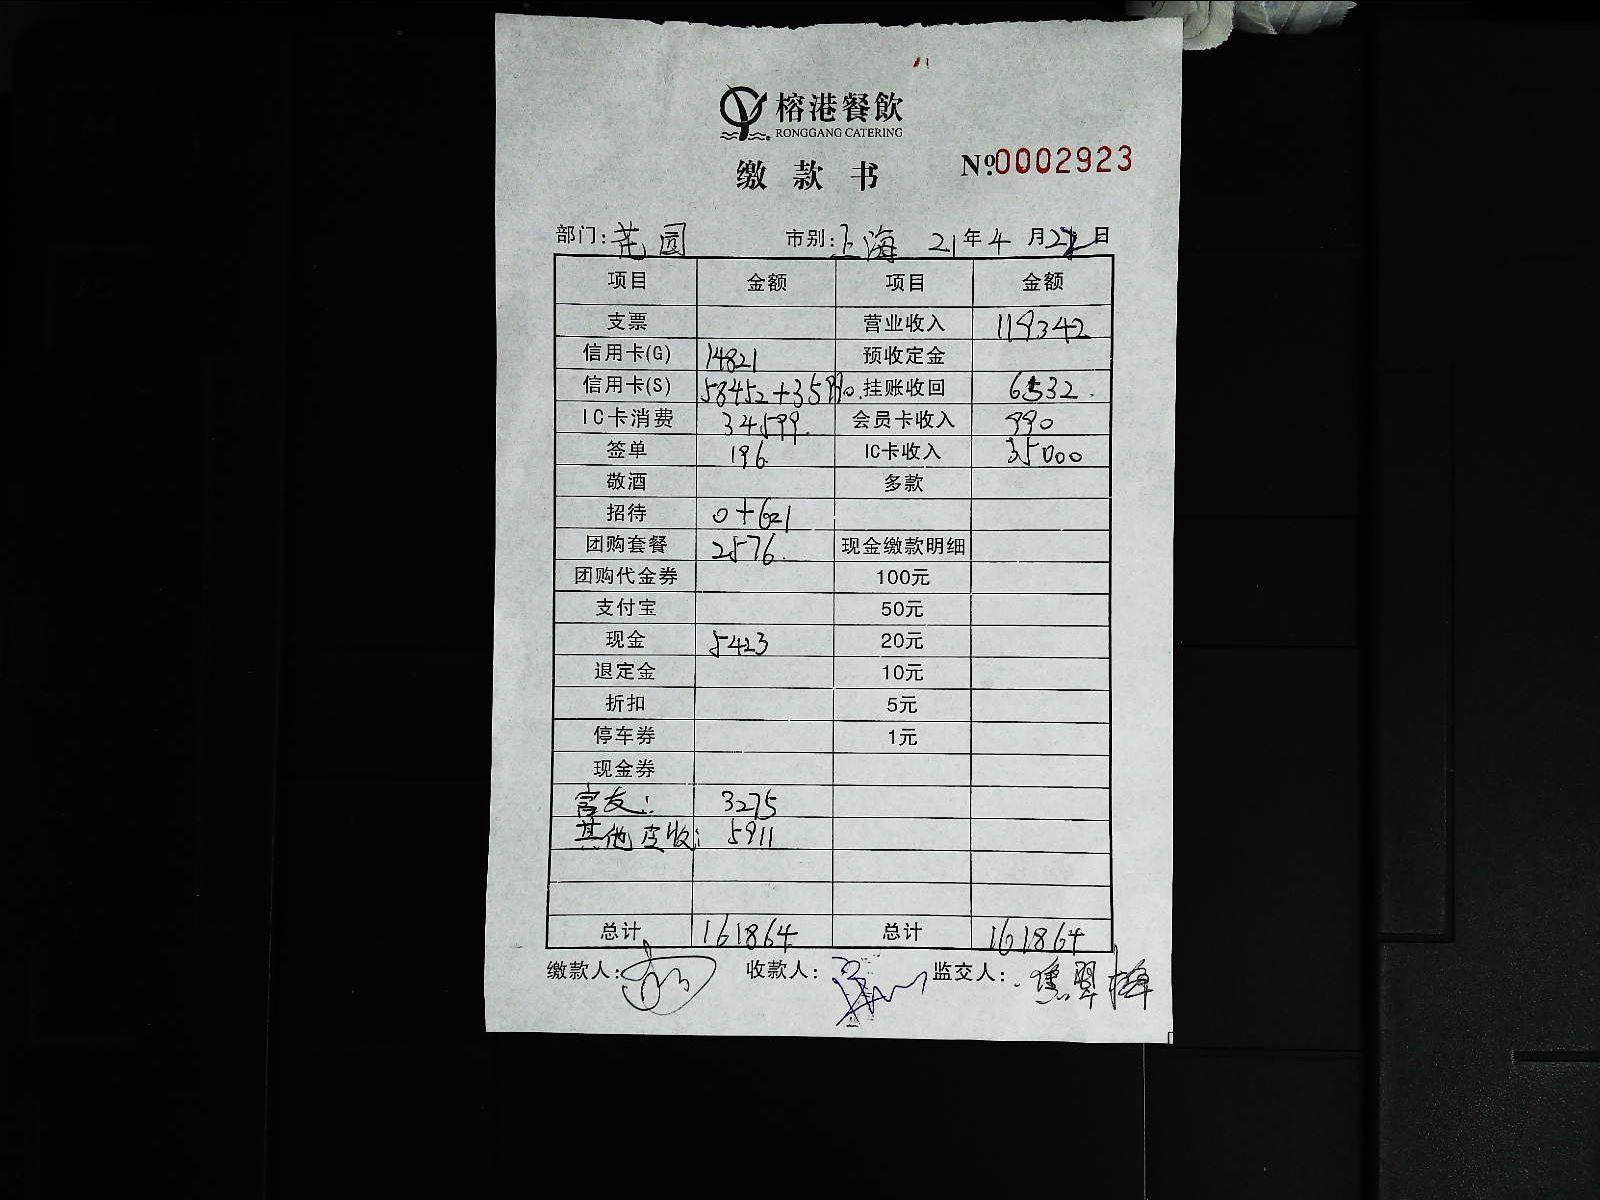 榕港餐飲
RONGGANG CATERING
缴款书 №0002923
部门: 花园 市别: 上海 21年4月22日
项目 金额 项目 金额
支票 营业收入 119342
信用卡(G) 14821 预收定金
信用卡(S) 58452+35990. 挂账收回 6532.
IC卡消费 34599. 会员卡收入 990
签单 196 IC卡收入 35000
敬酒 多款
招待 0+621
团购套餐 2576. 现金缴款明细
团购代金券 100元
支付宝 50元
现金 5423 20元
退定金 10元
折扣 5元
停车券 1元
现金券
3275
其他应收: 5911
总计 161864 总计 161864
缴款人: 收款人: 监交人: